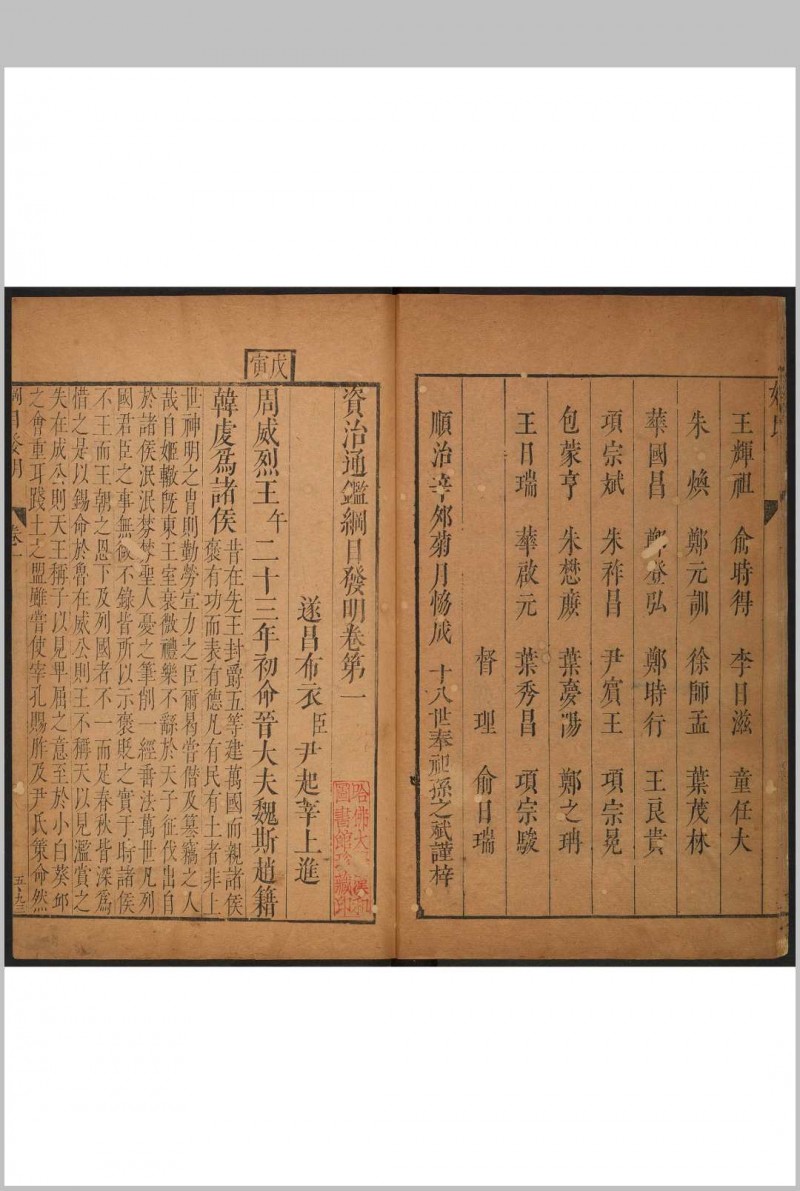 姓氏
王輝祖 俞時得 李日滋 童任大
朱煥 鄭元訓 徐師孟 葉茂林
華國昌 鄭登弘 鄭時行 王良貴
項宗斌 朱祚昌 尹賓王 項宗晃
包蒙亨 朱懋廣 葉夢湯 鄭之琇
王日瑞 華啟元 葉秀昌 項宗駿
督理 俞日瑞
順治辛夘菊月恊成 十八世奉祀孫之斌謹梓
資治通鑑綱目發明卷第一
遂昌布衣臣尹起莘上進
戊寅
周威烈王午二十三年初命晉大夫魏斯趙籍
韓虔爲諸侯
昔在先王封爵五等建萬國而親諸侯
褒有功而表有德凡有民有土者非上
世神明之胄則勳勞宣力之臣爾曷嘗僭及簒竊之人
哉自姬轍旣東王室衰微禮樂不繇於天子征伐出自
於諸侯泯泯棼棼聖人憂之筆削一經垂法萬世凡列
國君臣之事無微不錄皆所以示褒貶之實于時諸侯
不王而王朝之恩下及列國者不一而足春秋皆深爲
惜之是以錫命於魯在威公則王不稱天以見濫賞之
失在成公則天王稱子以見卑屈之意至於小白葵邱
之會重耳踐土之盟雖嘗使宰孔賜胙及尹氏策命然
綱目發明 卷一
五九三
哈佛大學漢和
圖書館珍藏印